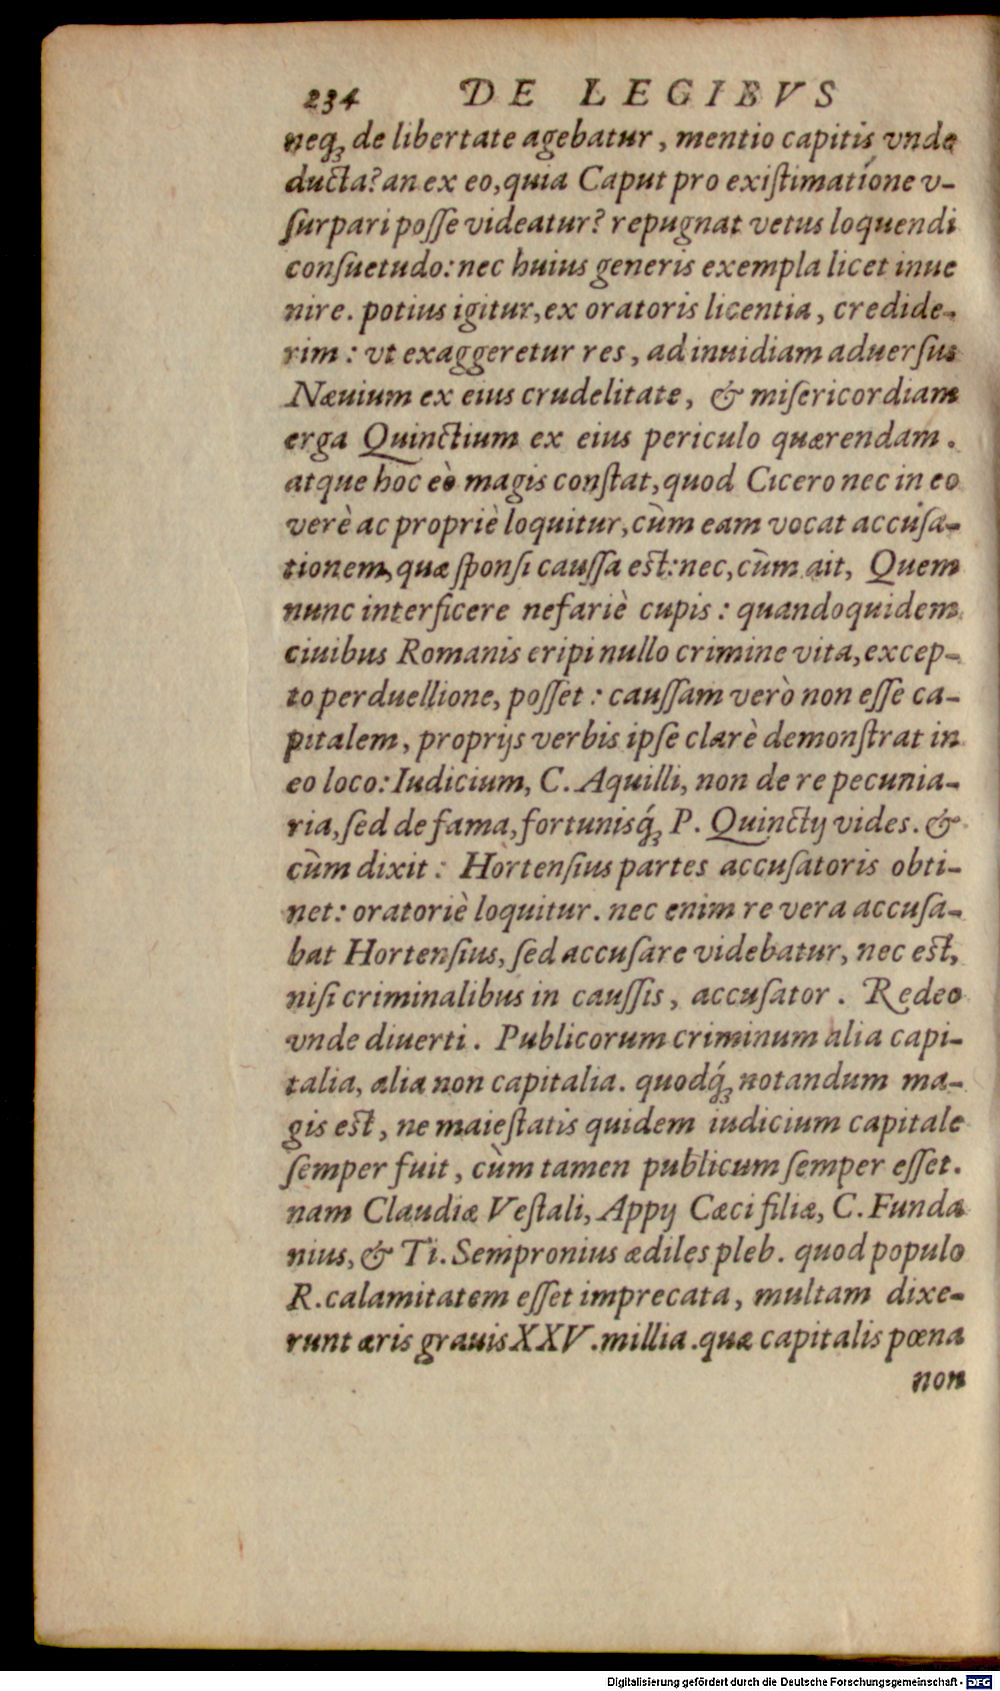 234 DE LEGIBVS
neq; de libertate agebatur, mentio capitis vnde
ducta? an ex eo, quia Caput pro existimatione v-
surpari posse videatur? repugnat vetus loquendi
consuetudo: nec huius generis exempla licet inue
nire. potius igitur, ex oratoris licentia, credide-
rim: vt exaggeretur res, ad inuidiam aduersus
Næuium ex eius crudelitate, & misericordiam
erga Quinctium ex eius periculo quærendam.
atque hoc eò magis constat, quod Cicero nec in eo
verè ac propriè loquitur, cùm eam vocat accusa-
tionem, quæ sponsi caussa est: nec, cùm ait, Quem
nunc interficere nefariè cupis: quandoquidem
ciuibus Romanis eripi nullo crimine vita, excep-
to perduellione, posset: caussam verò non esse ca-
pitalem, proprijs verbis ipse clarè demonstrat in
eo loco: Iudicium, C. Aquilli, non de re pecunia-
ria, sed de fama, fortunisq́; P. Quinctij vides. &
cùm dixit: Hortensius partes accusatoris obti-
net: oratoriè loquitur. nec enim re vera accusa-
bat Hortensius, sed accusare videbatur, nec est,
nisi criminalibus in caussis, accusator. Redeo
vnde diuerti. Publicorum criminum alia capi-
talia, alia non capitalia. quodq́; notandum ma-
gis est, ne maiestatis quidem iudicium capitale
semper fuit, cùm tamen publicum semper esset.
nam Claudiæ Vestali, Appij Cæci filiæ, C. Funda
nius, & Ti. Sempronius ædiles pleb. quod populo
R. calamitatem esset imprecata, multam dixe-
runt æris grauis XXV. millia. quæ capitalis pœna
non
Digitalisierung gefördert durch die Deutsche Forschungsgemeinschaft - DFG